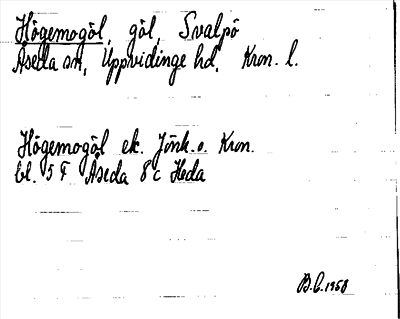 Högemogöl, göl, Svalpö
Åseda sn, Uppvidinge hd, Kron. l.
Högemogöl ek. Jönk. o. Kron.
bl. 5 F Åseda 8 c Heda
B.C. 1958